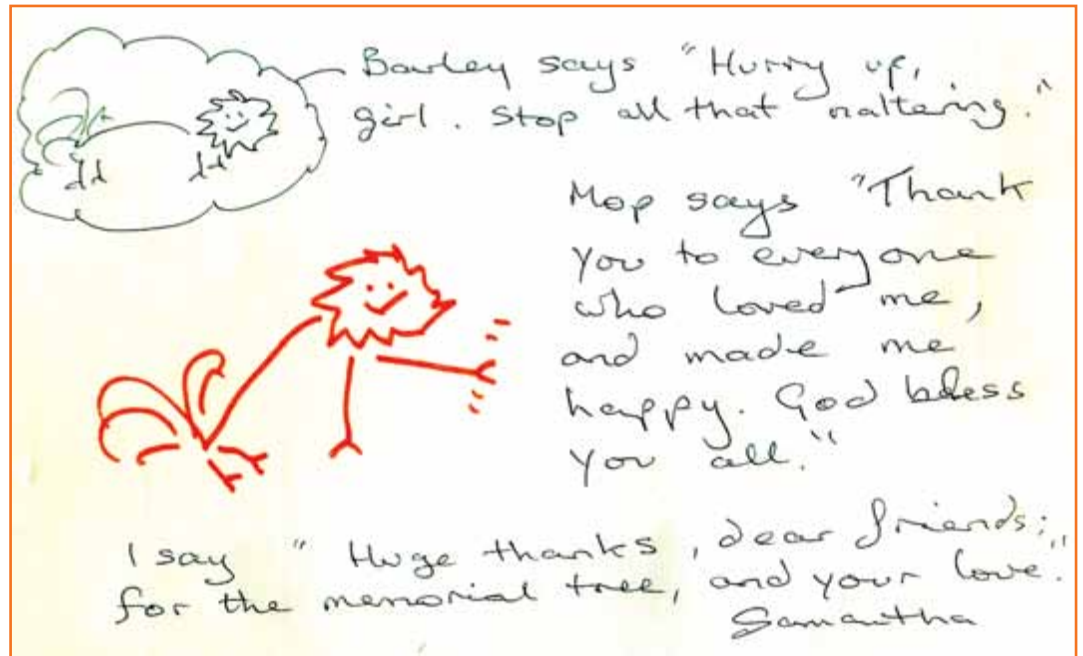 Barley says "Hurry up,
girl. Stop all that nattering."
Mop says "Thank
you to everyone
who loved me,
and made me
happy. God bless
you all."
I say "Huge thanks, dear friends;
for the memorial tree, and your love."
Samantha